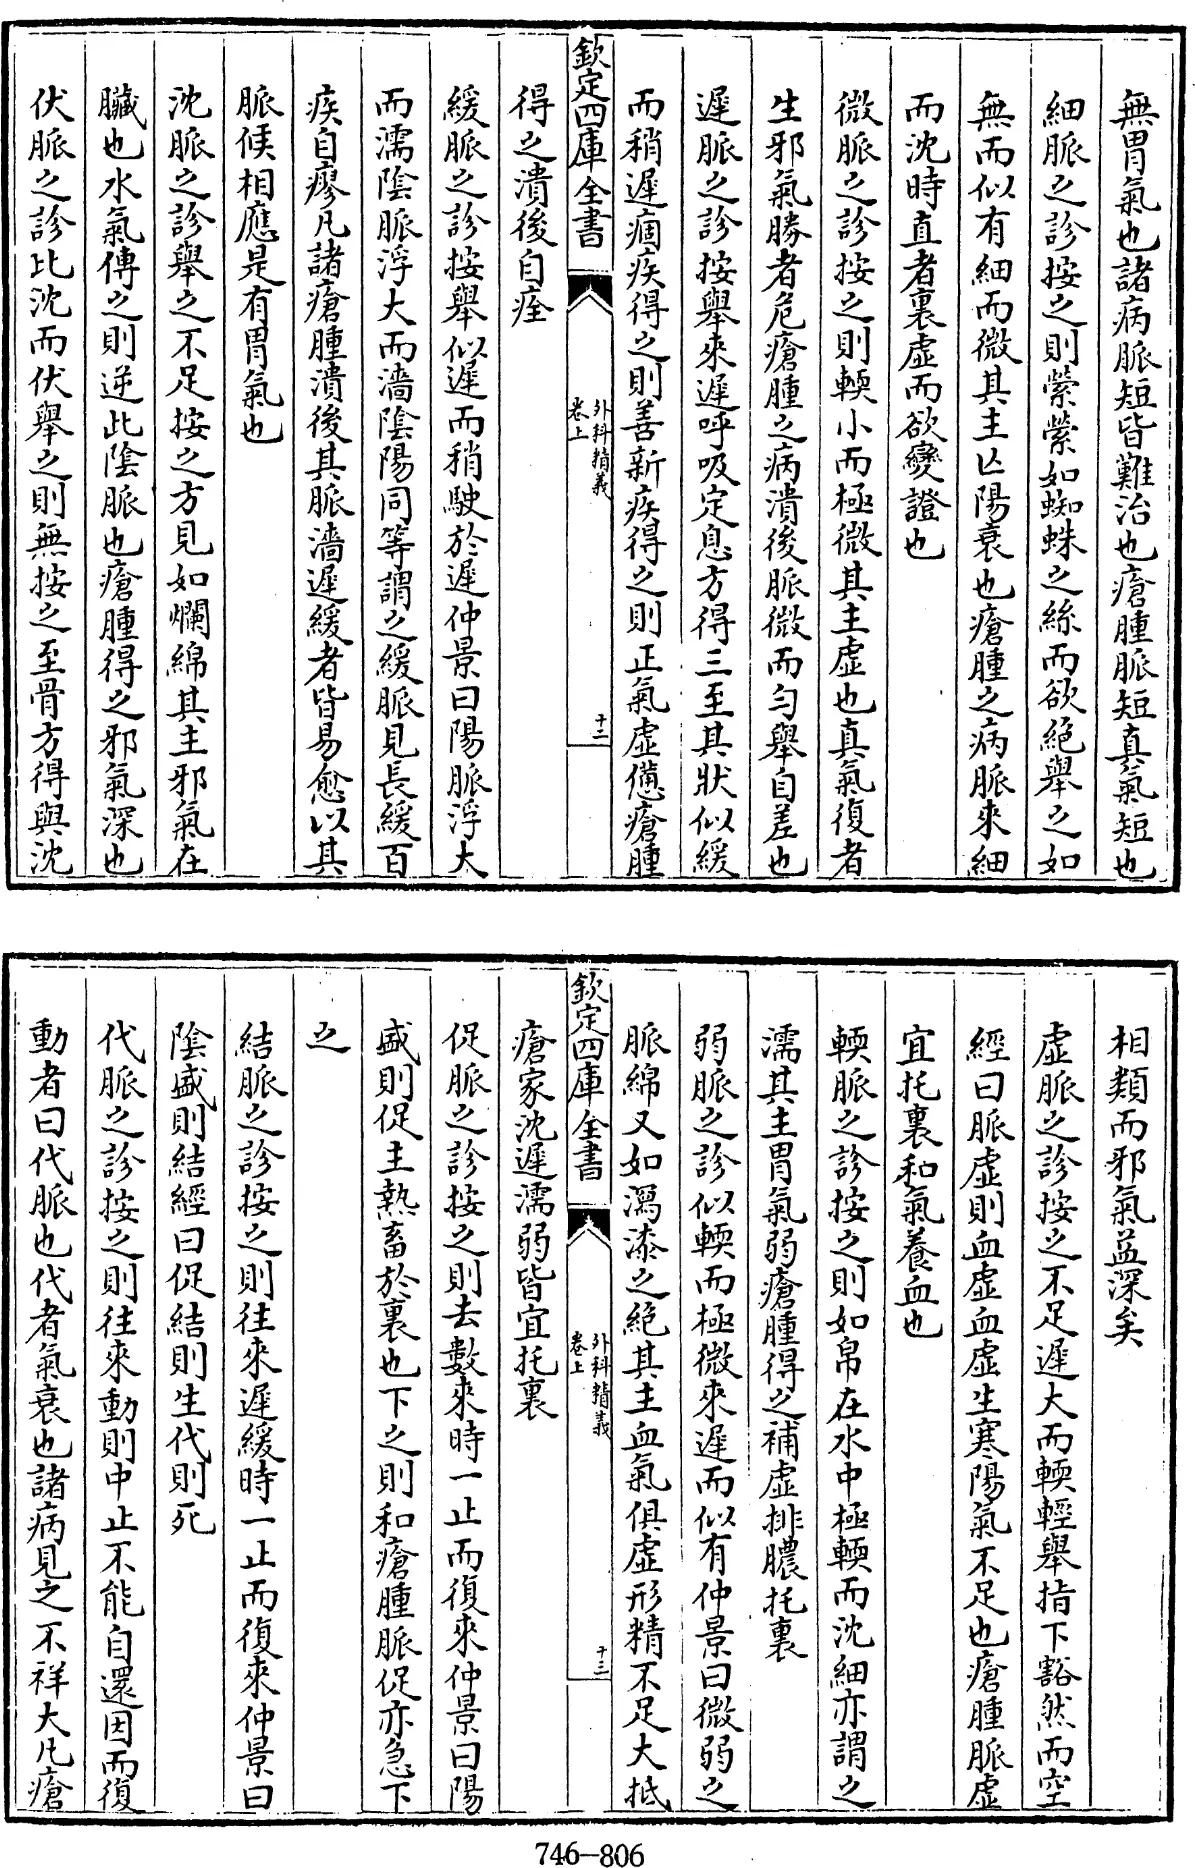 無胃氣也諸病脈短皆難治也瘡腫脈短真氣短也
細脈之診按之則縈縈如蜘蛛之絲而欲絶舉之如
無而似有細而微其主亾陽衰也瘡腫之病脈來細
而沈時直者裏虛而欲變證也
微脈之診按之則輭小而極微其主虛也真氣復者
生邪氣勝者危瘡腫之病潰後脈微而匀舉自差也
遲脈之診按舉來遲呼吸定息方得三至其狀似緩
而稍遲痼疾得之則善新疾得之則正氣虛憊瘡腫
欽定四庫全書
外科精義
卷上
十二
得之潰後自痊
緩脈之診按舉似遲而稍駛於遲仲景曰陽脈浮大
而濡陰脈浮大而濇陰陽同等謂之緩脈見長緩百
疾自瘳凡諸瘡腫潰後其脈濇遲緩者皆易愈以其
脈候相應是有胃氣也
沈脈之診舉之不足按之方見如爛綿其主邪氣在
臟也水氣傳之則逆此陰脈也瘡腫得之邪氣深也
伏脈之診比沈而伏舉之則無按之至骨方得與沈
相類而邪氣益深矣
虛脈之診按之不足遲大而輭輕舉指下豁然而空
經曰脈虛則血虛血虛生寒陽氣不足也瘡腫脈虛
宜托裏和氣養血也
輭脈之診按之則如帛在水中極輭而沈細亦謂之
濡其主胃氣弱瘡腫得之補虛排膿托裏
弱脈之診似輭而極微來遲而似有仲景曰微弱之
脈綿又如瀉漆之絶其主血氣俱虛形精不足大抵
欽定四庫全書
外科精義
卷上
十三
瘡家沈遲濡弱皆宜托裏
促脈之診按之則去數來時一止而復來仲景曰陽
盛則促主熱畜於裏也下之則和瘡腫脈促亦急下
之
結脈之診按之則往來遲緩時一止而復來仲景曰
陰盛則結經曰促結則生代則死
代脈之診按之則往來動則中止不能自還因而復
動者曰代脈也代者氣衰也諸病見之不祥大凡瘡
746-806